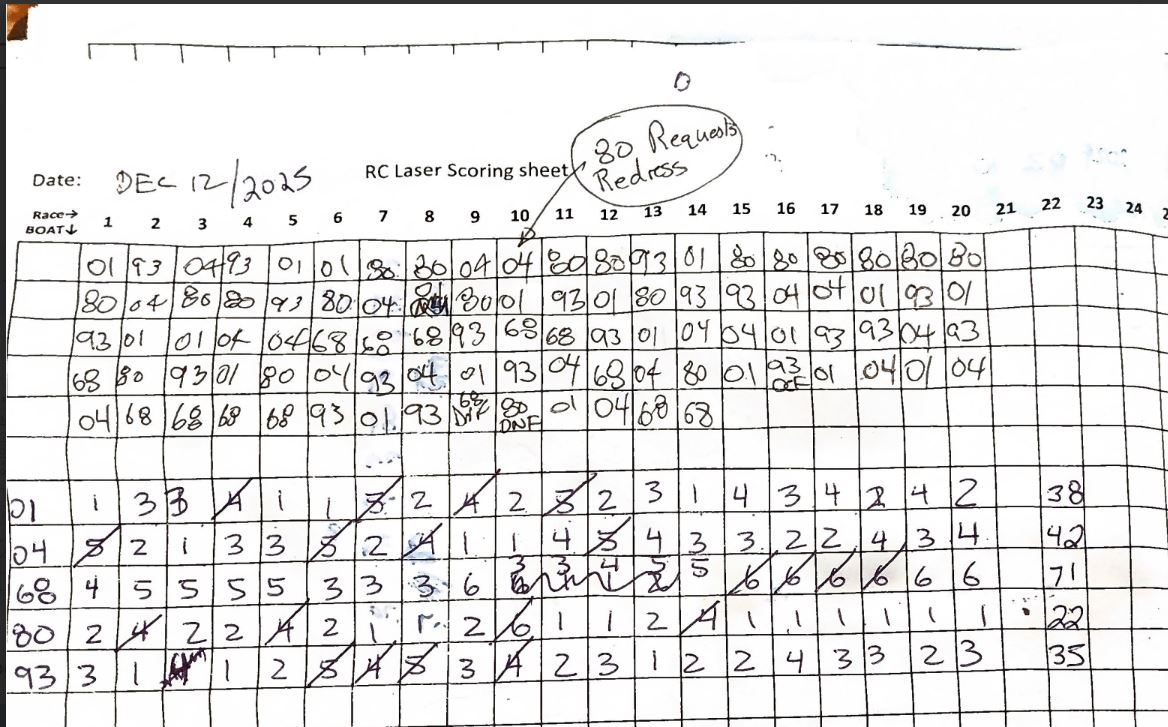 0
80 Requests
Redress
Date: DEC 12/2025 RC Laser Scoring sheet
Race→ 1 2 3 4 5 6 7 8 9 10 11 12 13 14 15 16 17 18 19 20 21 22 23 24
BOAT↓
01 93 04 93 01 01 80 80 04 04 80 80 93 01 80 80 80 80 80 80
80 04 80 80 93 80 04 01 80 01 93 01 80 93 93 04 04 01 93 01
93 01 01 04 04 68 68 68 93 68 68 93 01 04 04 01 93 93 04 93
68 80 93 01 80 04 93 04 01 93 04 68 04 80 01 93 OCF 01 04 01 04
04 68 68 68 68 93 01 93 68 DNF 80 DNF 01 04 68 68
01 1 3 3 4 1 1 5 2 4 2 5 2 3 1 4 3 4 2 4 2 38
04 5 2 1 3 3 5 2 4 1 1 4 5 4 3 3 2 2 4 3 4 42
3 3 4 5
68 4 5 5 5 5 3 3 3 6 5 6 6 6 6 6 6 71
80 2 4 2 2 4 2 1 1 2 6 1 1 2 4 1 1 1 1 1 1 22
93 3 1 4 1 2 5 4 5 3 4 2 3 1 2 2 4 3 3 2 3 35